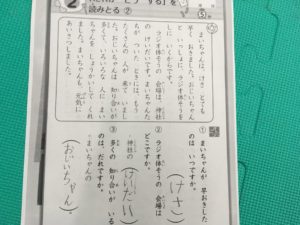 2
「どうする」を
読みとる ②
まいちゃんは、けさ、とても
早く おきました。おじいちゃん
と いっしょに、ラジオ体そうを
しに いくからです。
ラジオ体そうの 会場は、神社
の けいだいです。まいちゃんた
ちが ついた ときには、もう
たくさんの 人が 来ていまし
た。おじいちゃんは 知り合いが
多く、いろいろな 人に、まい
ちゃんを しょうかいして くれ
ました。まいちゃんも 元気に
あいさつしました。
① まいちゃんが 早おきした
のは、いつですか。
(けさ)
② ラジオ体そうの 会場は
どこですか。
・神社の(けいだい)
③ 多くの 知り合いが いる
のは、だれですか。
・まいちゃんの
(おじいちゃん)